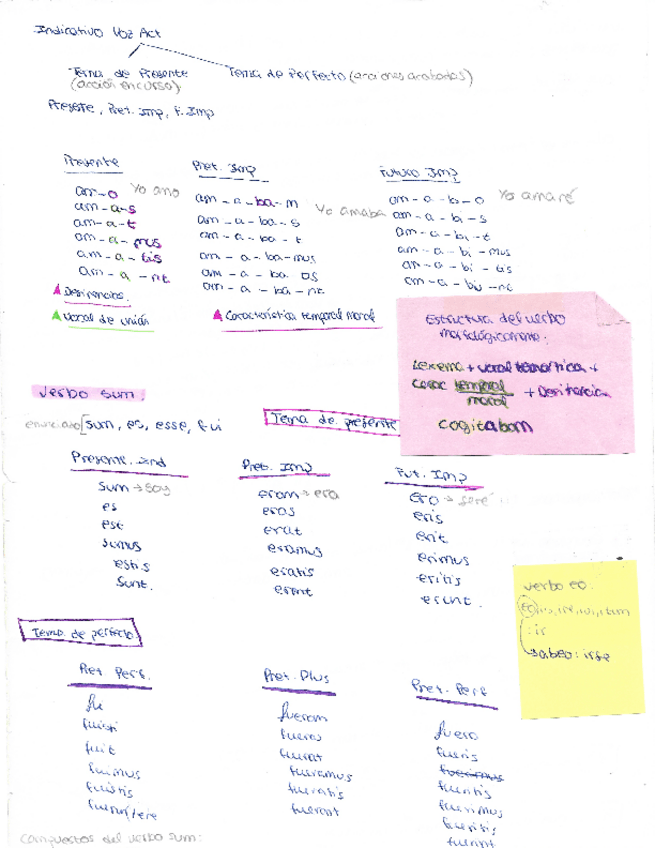 Indicativo Voz Act
Tema de Presente
(acción en curso)
Tema de Perfecto (acciones acabadas)
Presente, Pret. Imp, F. Imp
Presente
am-o Yo amo
am-a-s
am-a-t
am-a-mus
am-a-tis
am-a-nt
Desinencias.
Vocal de unión
Pret. Imp
am-a-ba-m Yo amaba
am-a-ba-s
am-a-ba-t
am-a-ba-mus
am-a-ba
am-a-ba-nt
Característica temporal modal
Futuro Imp
am-a-b-o Yo amaré
am-a-bi-s
am-a-bi-t
am-a-bi-mus
am-a-bi-tis
am-a-bu-nt
Estructura del verbo
morfológicamente:
Lexema + vocal temática +
carac temporal + Desinencia
modal
cogitabam
Verbo sum.
enunciado [sum, es, esse, fui
Tema de presente
Presente. Ind
sum → soy
es
est
sumus
estis
sunt.
Pret. Imp
eram → era
eras
erat
eramus
eratis
erant
Fut. Imp
ero → seré
eris
erit
erimus
eritis
erunt.
verbo eo.
: ir
Tema de perfecto
Pret. Perf.
fui
fuisti
fuit
fuimus
fuistis
Pret. Plus
fueram
fueras
fuerat
fueramus
fueratis
fuerant
Pret. Perf
fuero
fueris
fuerimus
fueritis
fuerint
compuestos del verbo sum: